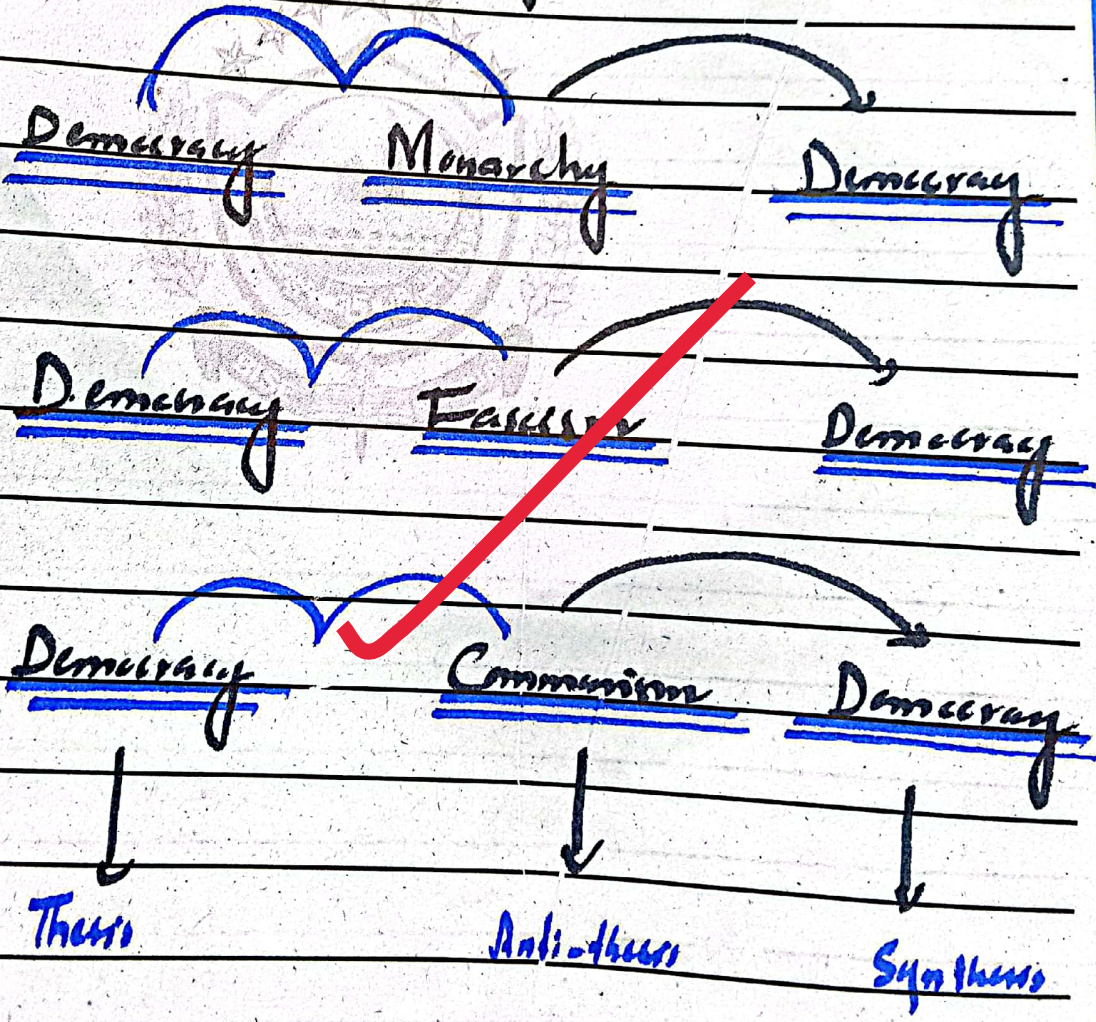 Democracy Monarchy Democracy
Democracy Fascism Democracy
Democracy Communism Democracy
Thesis Anti-thesis Synthesis